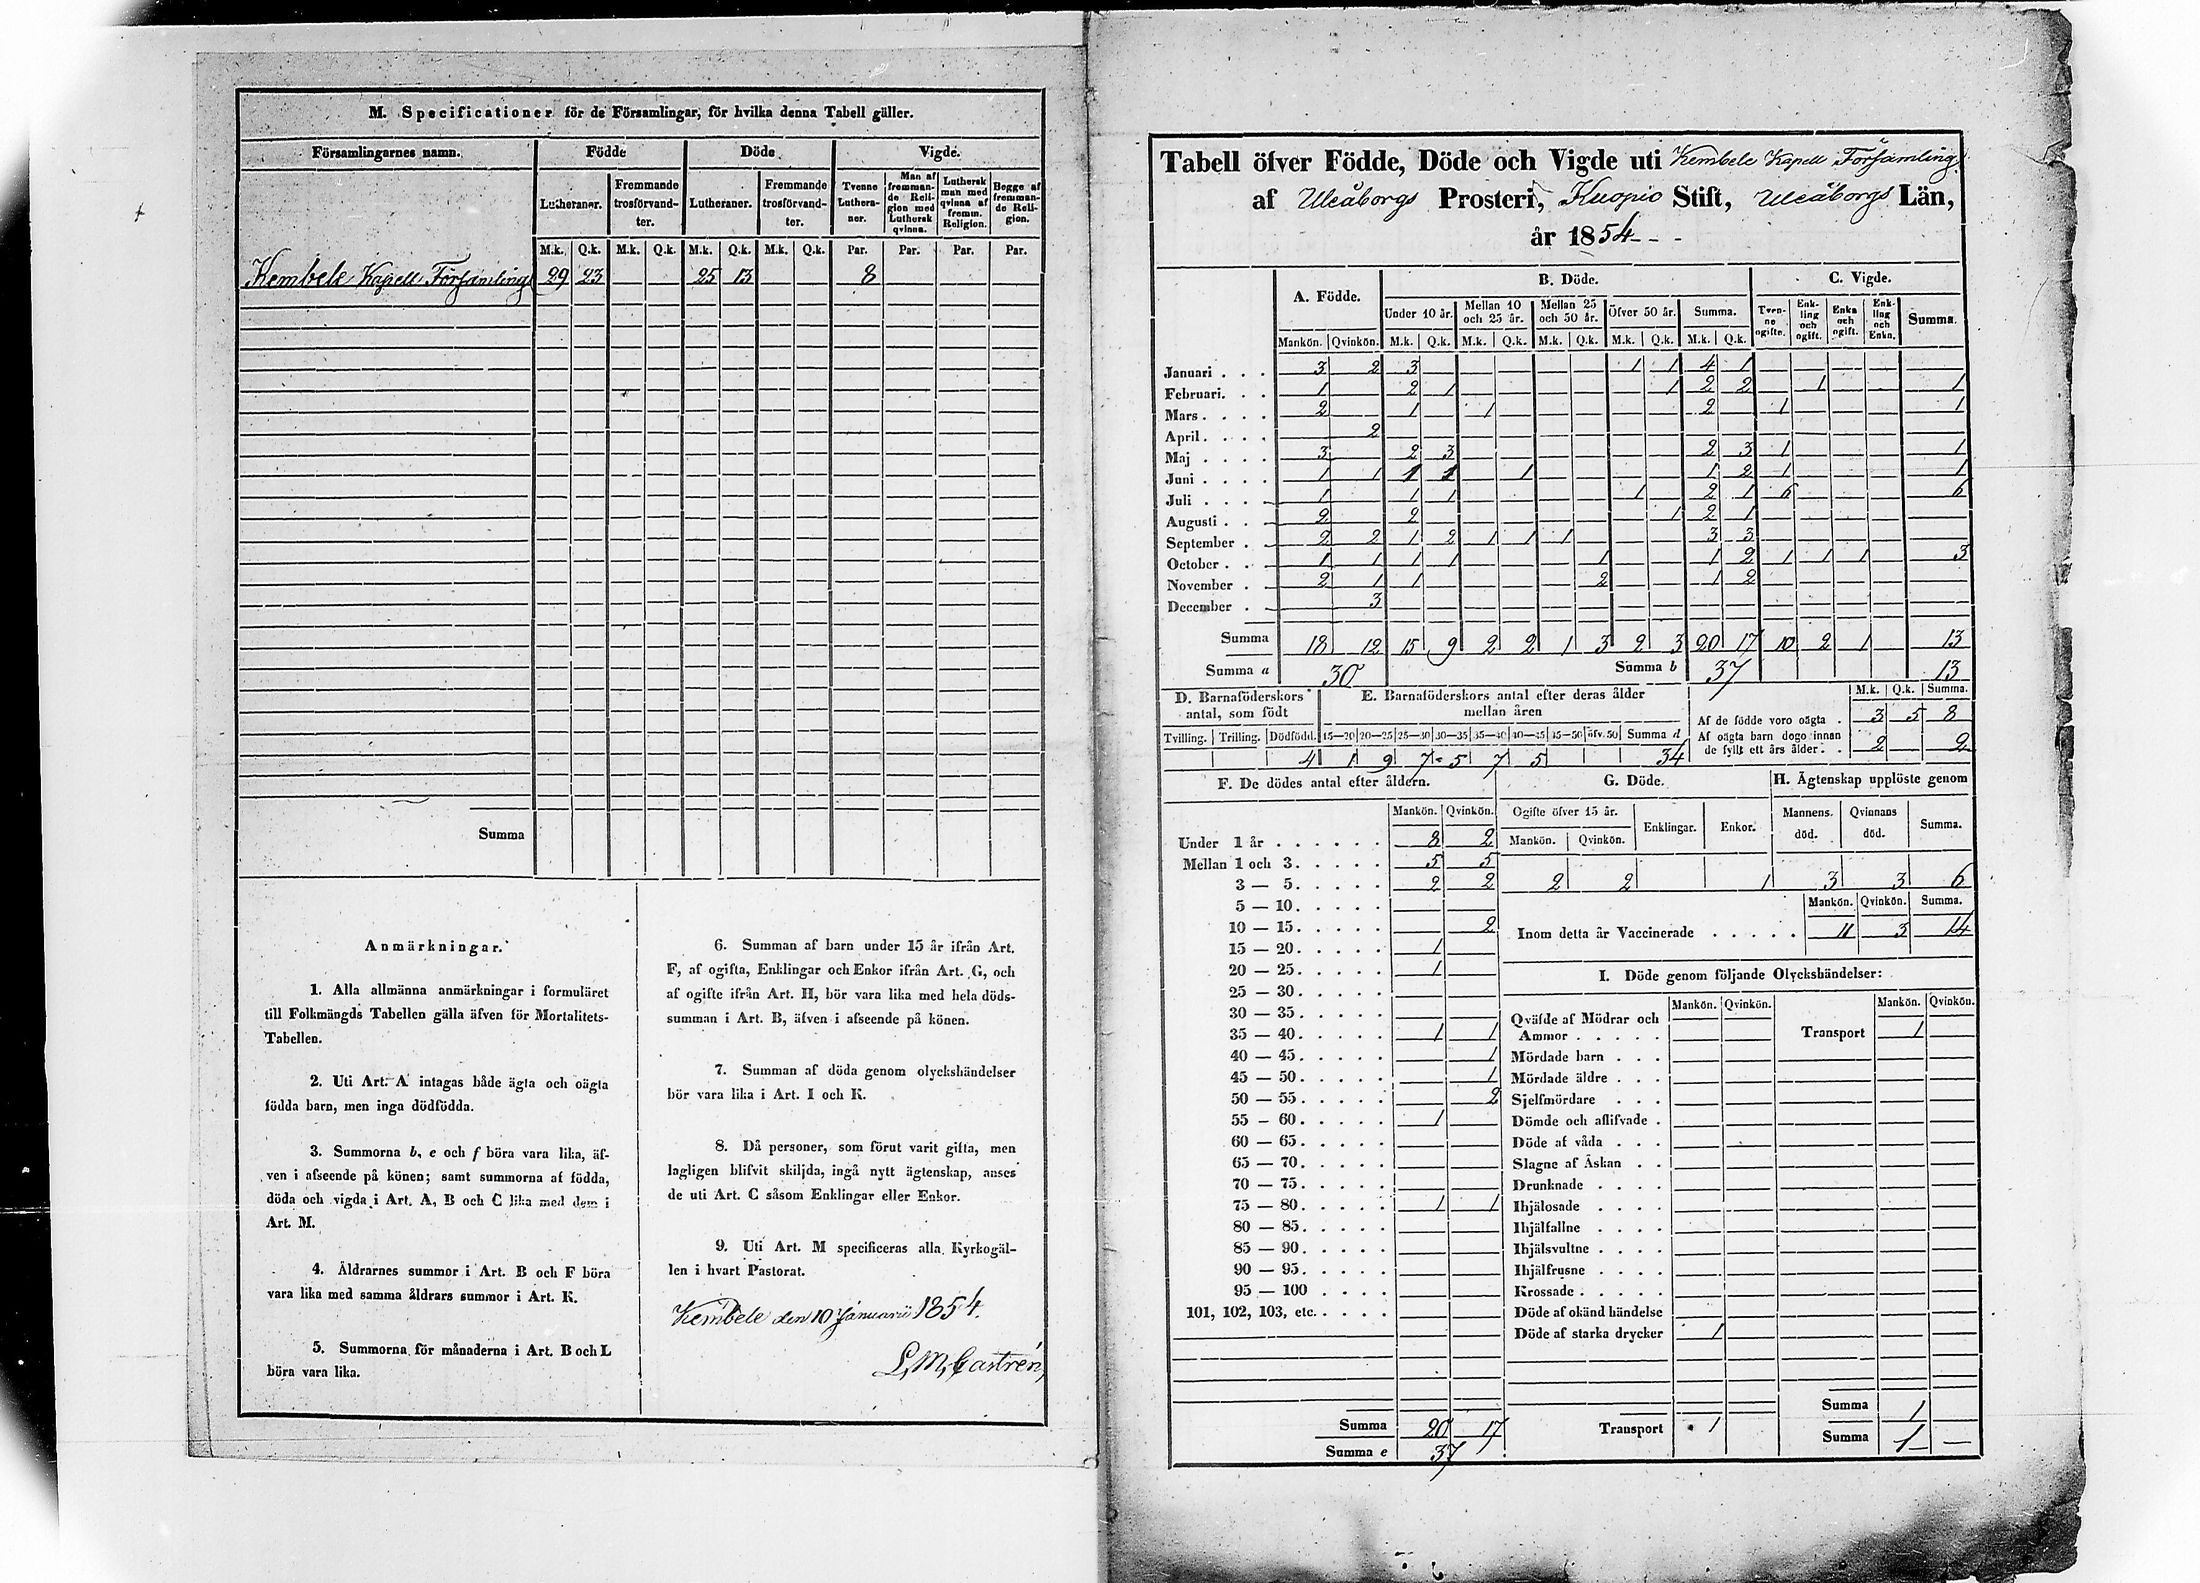 M. Specificationer för de Församlingar, för hvilka denna Tabell gäller.
Församlingarnes namn. Födde Döde Vigde.
Lutheraner. Fremmande trosförvandter. Lutheraner. Fremmande trosförvandter. Tvenne Lutheraner. Man af fremmande Religion med Luthersk qvinna. Luthersk man med qvinna af fremm. Religion. Begge af fremmande Religion.
M.k. Q.k. M.k. Q.k. M.k. Q.k. M.k. Q.k. Par. Par. Par. Par.
Kembele Kapell Församling 29 23 25 13 8
Summa
Anmärkningar.
1. Alla allmänna anmärkningar i formuläret
till Folkmängds Tabellen gälla äfven för Mortalitets-
Tabellen.
2. Uti Art. A intagas både ägta och oägta
födda barn, men inga dödfödda.
3. Summorna b, e och f böra vara lika, äf-
ven i afseende på könen; samt summorna af födda,
döda och vigda i Art. A, B och C lika med dem i
Art. M.
4. Åldrarnes summor i Art. B och F böra
vara lika med samma åldrars summor i Art. K.
5. Summorna för månaderna i Art. B och L
böra vara lika.
6. Summan af barn under 15 år ifrån Art.
F, af ogifta, Enklingar och Enkor ifrån Art. G, och
af ogifte ifrån Art. H, bör vara lika med hela döds-
summan i Art. B, äfven i afseende på könen.
7. Summan af döda genom olyckshändelser
bör vara lika i Art. I och K.
8. Då personer, som förut varit gifta, men
lagligen blifvit skiljda, ingå nytt ägtenskap, anses
de uti Art. C såsom Enklingar eller Enkor.
9. Uti Art. M specificeras alla Kyrkogäl-
len i hvart Pastorat.
Kembele den 10 Januarii 1854.
L. M. Castrén,
Tabell öfver Födde, Döde och Vigde uti Kembele Kapell Församling
af Uleåborgs Prosteri, Kuopio Stift, Uleåborgs Län,
år 1854
A. Födde. B. Döde. C. Vigde.
Under 10 år. Mellan 10 och 25 år. Mellan 25 och 50 år. Öfver 50 år. Summa. Tvenne ogifte. Enkling och ogift. Enka och ogift. Enkling och Enka. Summa.
Mankön. Qvinkön. M.k. Q.k. M.k. Q.k. M.k. Q.k. M.k. Q.k. M.k. Q.k.
Januari . . . 3 2 3 1 1 4 1
Februari. . . 1 2 1 1 2 2 1 1
Mars . . . . 2 1 1 2 1 1
April. . . . 2
Maj . . . . 3 2 3 2 3 1 1
Juni . . . . 1 1 1 1 1 1 2 1 1
Juli . . . . 1 1 1 1 2 1 6 6
Augusti . . 2 2 1 2 1
September . 2 2 1 2 1 1 1 3 3
October . . 1 1 1 1 1 1 2 1 1 1 3
November . 2 1 1 2 1 2
December . 3
Summa 18 12 15 9 2 2 1 3 2 3 20 17 10 2 1 13
Summa a 30 Summa b 37 13
D. Barnaföderskors antal, som födt
E. Barnaföderskors antal efter deras ålder mellan åren
M.k. Q.k. Summa.
Af de födde voro oägta . 3 5 8
Af oägta barn dogo innan de fyllt ett års ålder . . 2 2
Tvilling. Trilling. Dödfödd. 15—20 20—25 25—30 30—35 35—40 40—45 45—50 öfv. 50 Summa d
4 1 9 7 5 7 5 34
F. De dödes antal efter åldern.
Mankön. Qvinkön.
Under 1 år . . . . . . 8 2
Mellan 1 och 3. . . . . 5 5
3 — 5. . . . . 2 2
5 — 10. . . . .
10 — 15. . . . . 2
15 — 20. . . . . 1
20 — 25. . . . . 1
25 — 30. . . . .
30 — 35. . . . .
35 — 40. . . . . 1 1
40 — 45. . . . . 1
45 — 50. . . . . 1
50 — 55. . . . . 2
55 — 60. . . . . 1
60 — 65. . . . .
65 — 70. . . . .
70 — 75. . . . .
75 — 80. . . . . 1 1
80 — 85. . . . .
85 — 90. . . . .
90 — 95. . . . .
95 — 100 . . . .
101, 102, 103, etc. . . . .
Summa 20 17
Summa e 37
G. Döde.
Ogifte öfver 15 år. Enklingar. Enkor.
Mankön. Qvinkön.
2 2 1
H. Ägtenskap upplöste genom
Mannens död. Qvinnans död. Summa.
3 3 6
Mankön. Qvinkön. Summa.
Inom detta år Vaccinerade . . . . . 11 3 14
I. Döde genom följande Olyckshändelser:
Mankön. Qvinkön. Mankön. Qvinkön.
Qväfde af Mödrar och
Ammor . . . . . Transport 1
Mördade barn . . .
Mördade äldre . . .
Sjelfmördare . . .
Dömde och aflifvade .
Döde af våda . . .
Slagne af Åskan . .
Drunknade . . . .
Ihjälosade . . . .
Ihjälfallne . . . .
Ihjälsvultne . . . .
Ihjälfrusne . . . .
Krossade . . . . .
Döde af okänd händelse
Döde af starka drycker 1
Summa 1
Transport 1 Summa 1 —